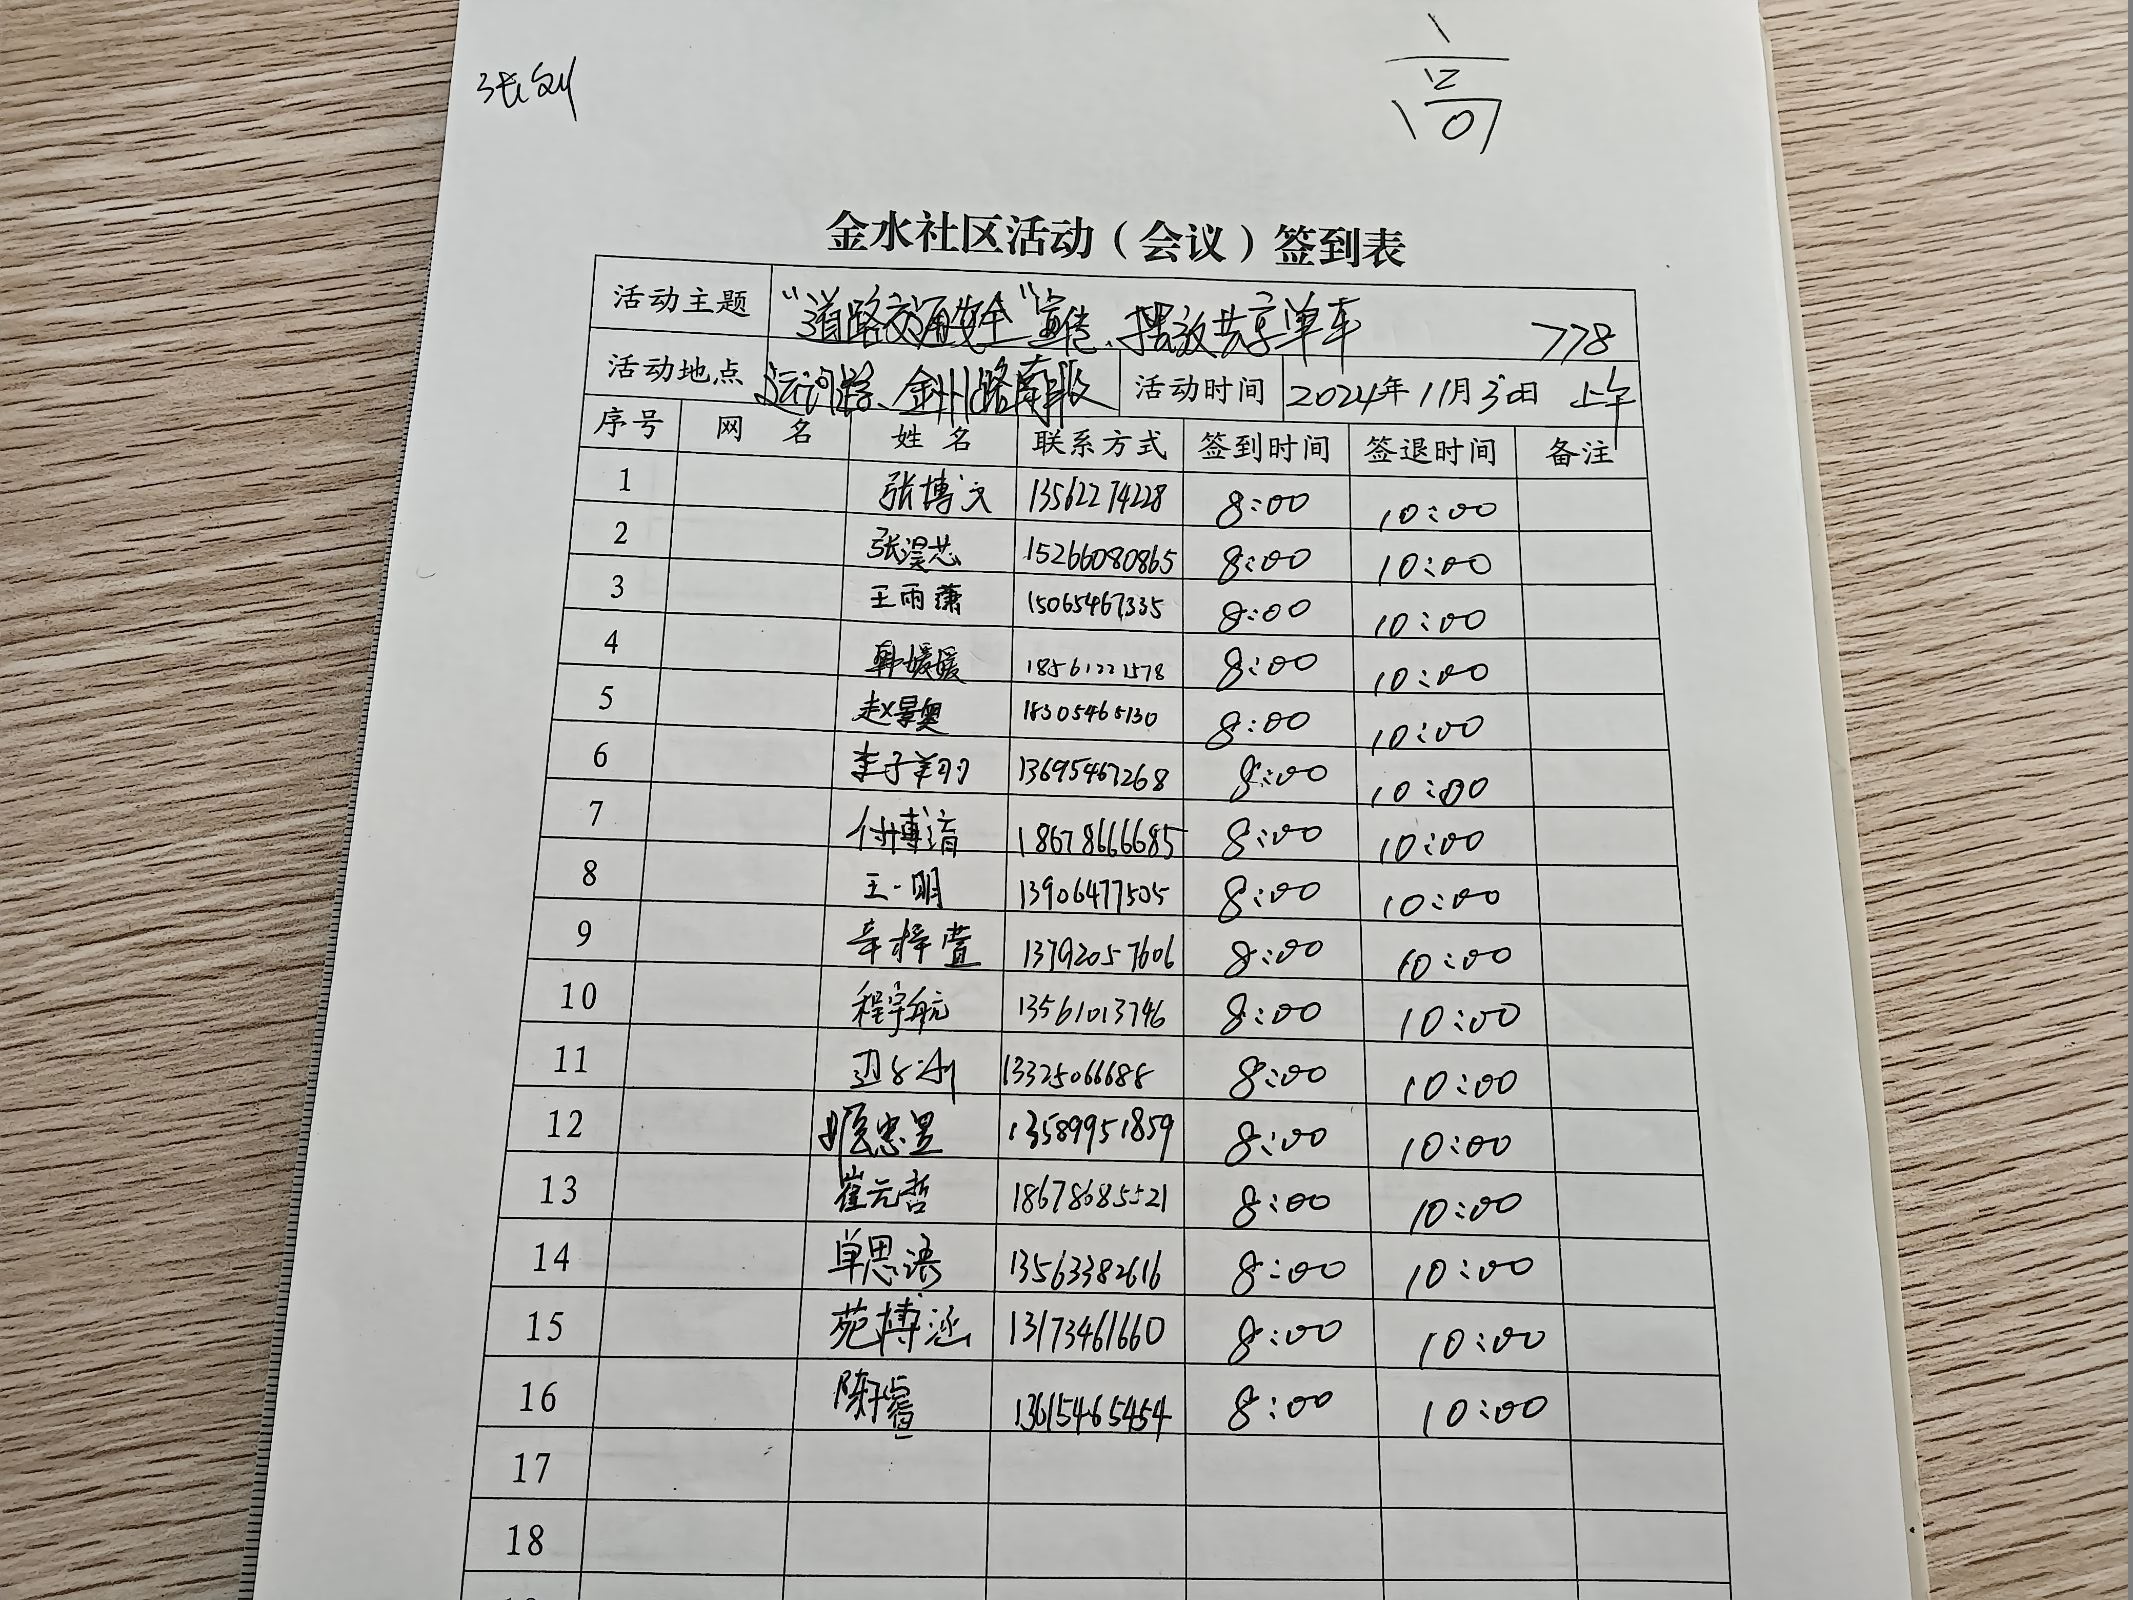 高
金水社区活动（会议）签到表
活动主题 “道路交通安全”宣传、摆放共享单车 778
活动地点 金州路南段 活动时间 2024年11月30日 上午
序号 网名 姓名 联系方式 签到时间 签退时间 备注
1 张博文 13562274228 8:00 10:00
2 张淏芯 15266080865 8:00 10:00
3 王雨薇 15065467335 8:00 10:00
4 韩媛媛 18561221578 8:00 10:00
5 赵景奥 18305465130 8:00 10:00
6 李子羊羽 13695467268 8:00 10:00
7 付博淯 18678666685 8:00 10:00
8 王一明 13906477505 8:00 10:00
9 辛梓萱 13792057606 8:00 10:00
10 程宇航 13561013746 8:00 10:00
11 13325066688 8:00 10:00
12 13589951859 8:00 10:00
13 崔元哲 18678685521 8:00 10:00
14 单思语 13563382616 8:00 10:00
15 苑博涵 13173461660 8:00 10:00
16 陈睿 13615465454 8:00 10:00
17
18